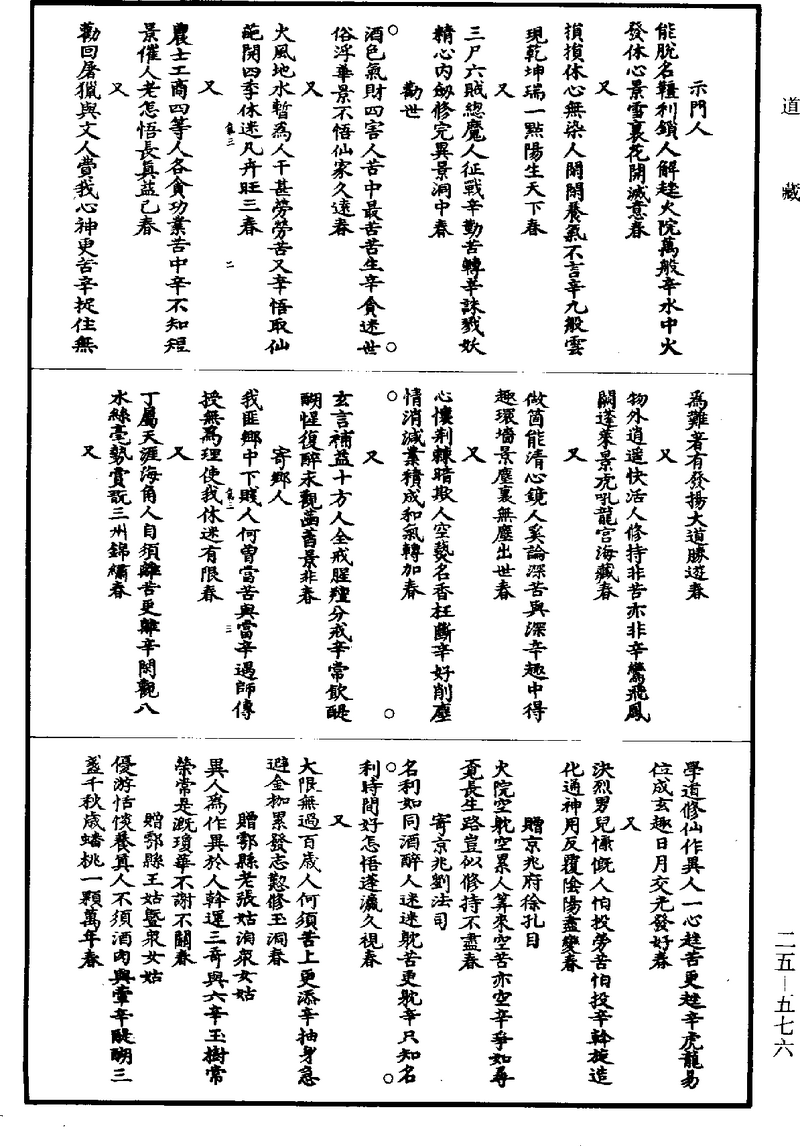 道藏
示門人
能脫名韁利鎖人解趂火院萬般辛水中火
發休心景雪裏花開滅意春
又
損損休心無染人閑閑養氣不言辛九般雲
現乾坤瑞一點陽生天下春
又
三尸六賊總魔人征戰辛勤苦轉辛誅戮妖
精心內劒修完異景洞中春
勸世
酒色氣財四害人苦中最苦苦生辛貪迷世
俗浮華景不悟仙家久遠春
又
火風地水暫為人干甚勞勞苦又辛悟取仙
葩開四季休迷凡卉旺三春
又
農士工商四等人各貪功業苦中辛不知短
景催人老怎悟長真益已春
又
勸回屠獵與文人費我心神更苦辛捉住無
為難著有發揚大道勝遊春
又
物外逍遥快活人修持非苦亦非辛鸞飛鳳
闕蓬萊景虎吼龍宮海藏春
又
做箇能清心鏡人奚論深苦與深辛趣中得
趣環墻景塵裏無塵出世春
又
心懷荆棘暗欺人空爇名香枉斷辛好削塵
情消滅業積成和氣轉加春
又
玄言補益十方人全戒腥羶分戒辛常飲醍
醐惺復醉永觀菡萏景非春
寄鄉人
我匪鄉中下賤人何曾當苦與當辛遇師傳
授無為理使我休迷有限春
又
丁屬天涯海角人自須離苦更離辛閑觀八
水絲毫勢賞翫三州錦繡春
又
學道修仙作異人一心趂苦更趂辛虎龍易
位成玄趣日月交光發好春
又
決烈男兒慷慨人怕投勞苦怕投辛幹旋造
化通神用反覆陰陽盡變春
贈京兆府徐孔目
火院空躭空累人筭來空苦亦空辛爭如尋
覓長生路豈似修持不盡春
寄京兆劉法司
名利如同酒醉人迷迷躭苦更躭辛只知名
利時間好怎悟蓬瀛久視春
又
大限無過百歲人何須苦上更添辛抽身急
避金枷累發志懃修玉洞春
贈鄠縣老張姑洎衆女姑
異人為作異於人幹運三奇與六辛玉樹常
榮常是溉瓊華不謝不關春
贈鄠縣王姑曁衆女姑
優游恬倓養真人不須酒肉與葷辛醍醐三
盞千秋歲蟠桃一顆萬年春
二五—五七六